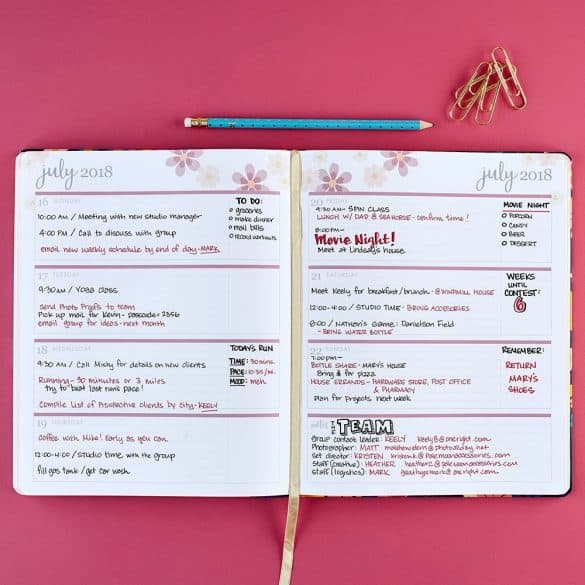 july 2018
16 MONDAY
10:00 AM / Meeting with new studio manager
4:00 PM / Call to discuss with group
email new weekly schedule by end of day - MARK
TO DO:
groceries
make dinner
mail bills
record workouts
17 TUESDAY
9:30 AM / Yoga class
Send Photo Proofs to team
Pick up mail for Kevin - passcode= 2356
email group for ideas - next month
18 WEDNESDAY
9:30 AM / Call Mishy for details on new clients
Running - 30 minutes or 3 miles
try to beat last runs pace!
Compile List of Prospective clients by city - KEELY
TODAY'S RUN
TIME: 30 mins.
PACE: 10:35/mi.
MOOD: meh.
19 THURSDAY
Coffee with Mike! Early as you can
12:00-4:00 / Studio time with the group
fill gas tank / get car wash
july 2018
20 FRIDAY
9:30 AM - SPIN CLASS
LUNCH W/ DAD @ SEAHORSE - confirm time!
8:00 PM -
Movie Night!
Meet at Lindsay's House.
MOVIE NIGHT
POPCORN
CANDY
BEER
DESSERT
21 SATURDAY
Meet Keely for breakfast/brunch - @ WINDMILL HOUSE
12:00-4:00 / STUDIO TIME - BRING ACCESSORIES
8:00 / Nathan's Game: Danielson Field
- BRING WATER BOTTLE
WEEKS
UNTIL
CONTEST:
6
22 SUNDAY
7:00 PM -
BOTTLE SHARE - MARY'S HOUSE
Bring $ for pizza
HOUSE ERRANDS - HARDWARE STORE, POST OFFICE
& PHARMACY
Plan for Projects next week
REMEMBER:
RETURN
MARY'S
SHOES
THE TEAM
Group contact leader: KEELY
Photographer: MATT
Set director: KRISTEN
Staff (creative): HEATHER
Staff (logistics): MARK